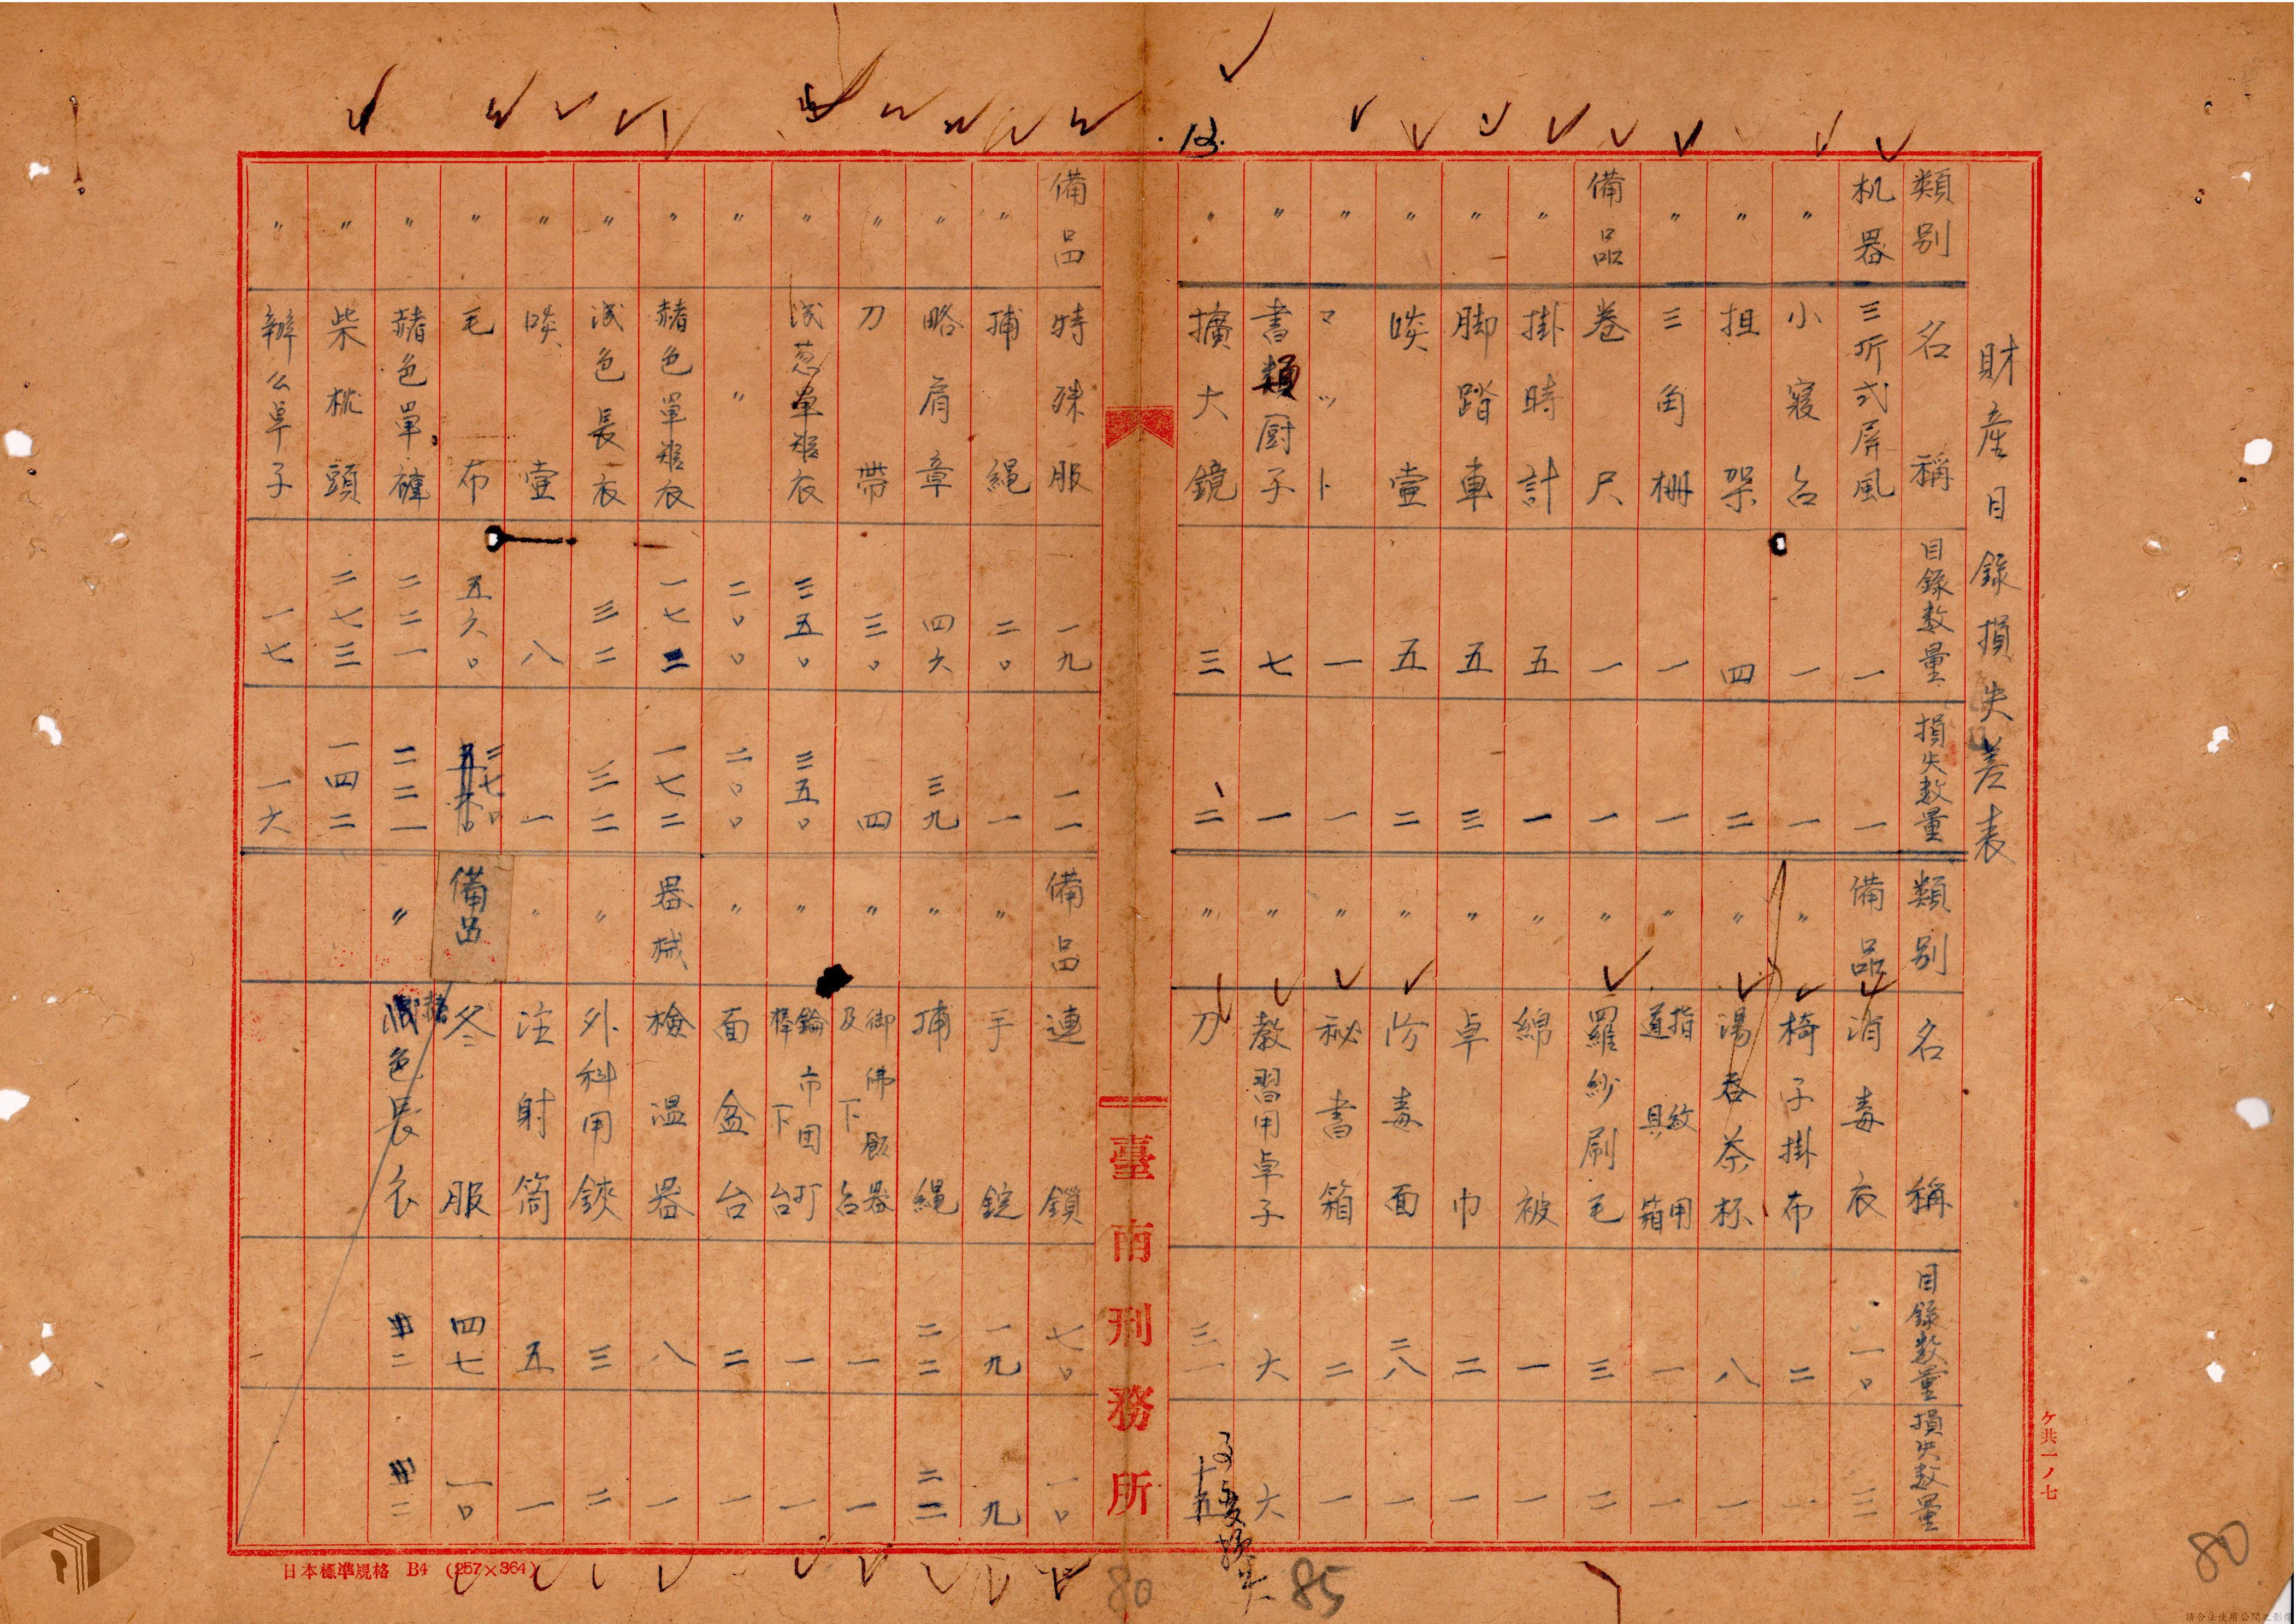 財產目錄損失差表
類別 名稱 目錄數量 損失數量
机器 三折式屏風 一 一
〃 小寢台 一 一
〃 担架 四 二
〃 三角柵 一 一
備品 卷尺 一 一
〃 掛時計 五 一
〃 脚踏車 五 三
〃 啖壷 五 二
〃 マット 一 一
〃 書類厨子 七 一
〃 擴大鏡 三 二
類別 名稱 目錄數量 損失數量
備品 消毒衣 一〇 三
〃 椅子掛布 二 一
〃 湯呑茶杯 八 一
〃 指紋用道具箱 一 一
〃 羅紗刷毛 三 二
〃 綿被 一 一
〃 卓巾 二 一
〃 防毒面 二八 一
〃 秘書箱 二 一
〃 教習用卓子 六 六
〃 刀 三一 十五
臺南刑務所
備品 特殊服 一九 一一
〃 捕繩 二〇 一
〃 略肩章 四六 三九
〃 刀帶 三〇 四
〃 浅葱單短衣 三五〇 三五〇
〃 〃 二〇〇 二〇〇
〃 赭色單短衣 一七二 一七二
〃 浅色長衣 三二 三二
〃 啖壷 八 一
〃 毛布 五六〇 三七〇
〃 赭色單褲 二二一 二二一
〃 柴枕頭 二七三 一四二
〃 辦公卓子 一七 一六
備品 連鎖 七〇 一〇
〃 手錠 一九 九
〃 捕繩 二二 二二
〃 御佛飯器及下台 一 一
〃 下台 一 一
〃 面盆台 二 一
器械 檢溫器 八 一
〃 外科用鋏 三 二
〃 注射筒 五 一
備品 冬服 四七 一〇
〃 赭色長衣 二 二
日本標準規格 B4 (257×364)
ケ共一ノ七
80
85
80